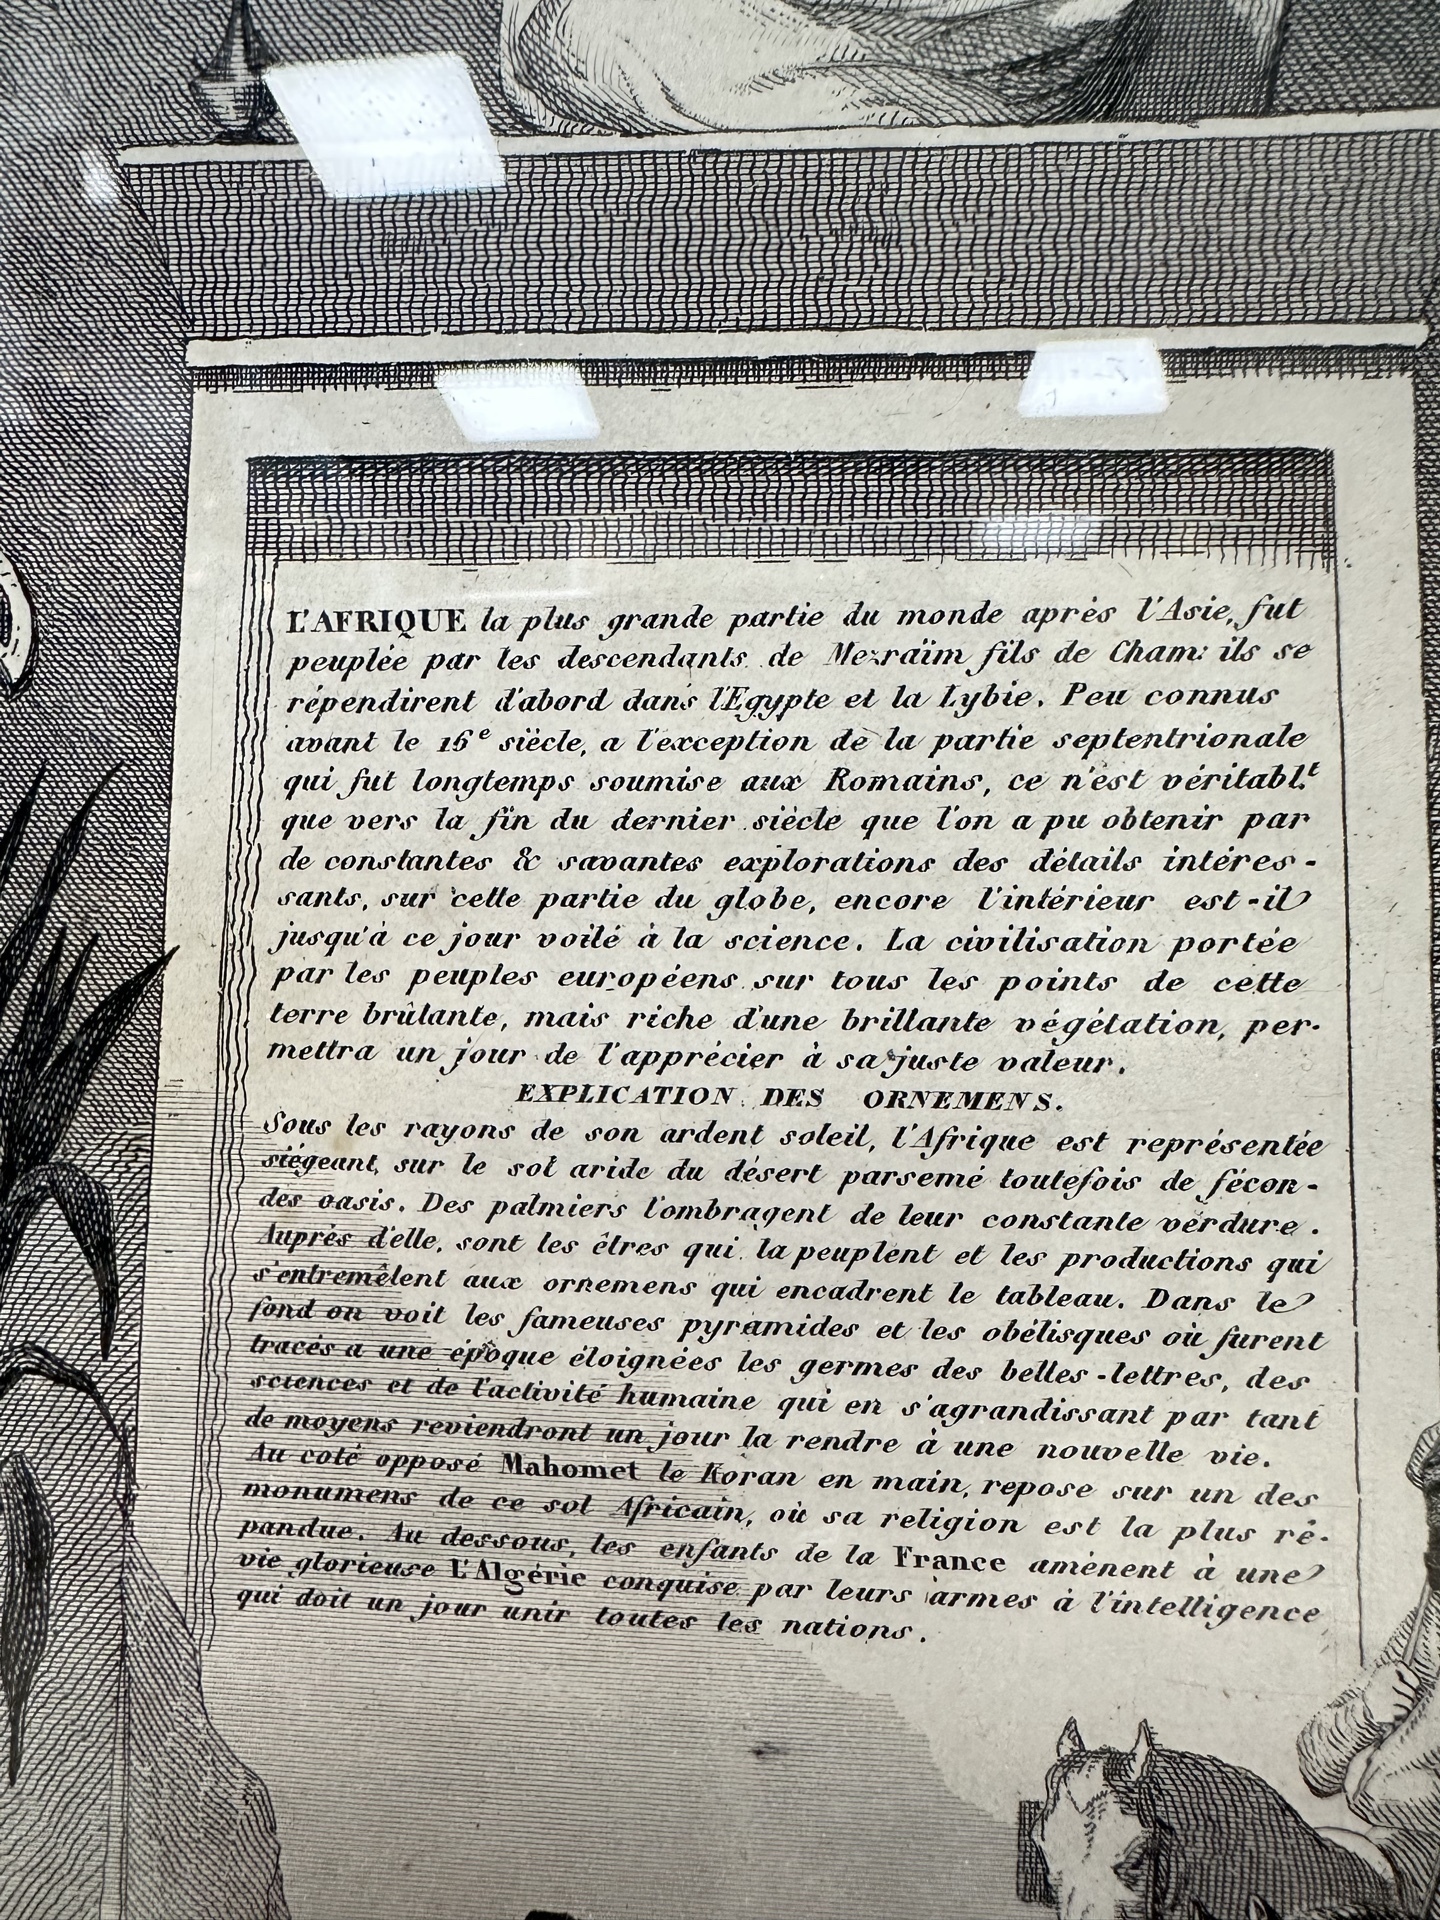 L'AFRIQUE la plus grande partie du monde après l'Asie, fut
peuplée par les descendants de Mezraïm fils de Cham: ils se
répendirent d'abord dans l'Egypte et la Lybie. Peu connus
avant le 16e siècle, a l'exception de la partie septentrionale
qui fut longtemps soumise aux Romains, ce n'est véritabl.t
que vers la fin du dernier siècle que l'on a pu obtenir par
de constantes & savantes explorations des détails intéres-
sants, sur cette partie du globe, encore l'intérieur est-il
jusqu'à ce jour voilé à la science. La civilisation portée
par les peuples européens sur tous les points de cette
terre brûlante, mais riche d'une brillante végétation, per-
mettra un jour de l'apprécier à sa juste valeur.
EXPLICATION DES ORNEMENS.
Sous les rayons de son ardent soleil, l'Afrique est représentée
siégeant, sur le sol aride du désert parsemé toutefois de fécon-
des oasis. Des palmiers l'ombragent de leur constante verdure.
Auprès d'elle, sont les êtres qui la peuplent et les productions qui
s'entremêlent aux ornemens qui encadrent le tableau. Dans le
fond on voit les fameuses pyramides et les obélisques où furent
tracés a une époque éloignées les germes des belles-lettres, des
sciences et de l'activité humaine qui en s'agrandissant par tant
de moyens reviendront un jour la rendre à une nouvelle vie.
Au coté opposé Mahomet le Koran en main, repose sur un des
monumens de ce sol Africain, où sa religion est la plus ré-
pandue. Au dessous, les enfants de la France amènent à une
vie glorieuse L'Algérie conquise par leurs armes à l'intelligence
qui doit un jour unir toutes les nations.